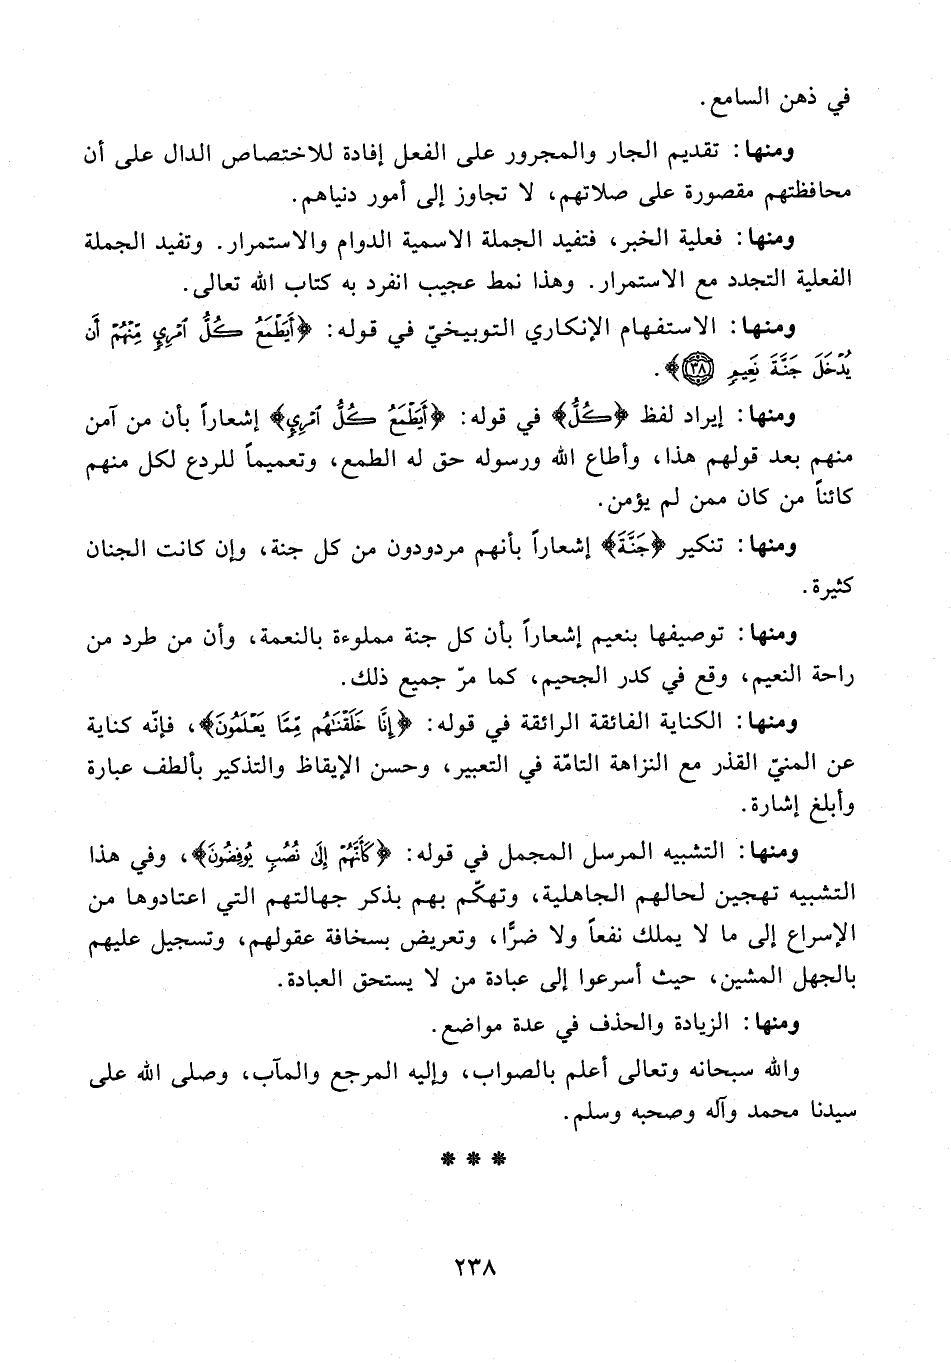 في ذهن السامع.
ومنها: تقديم الجار والمجرور على الفعل إفادة للاختصاص الدال على أن
محافظتهم مقصورة على صلاتهم، لا تجاوز إلى أمور دنياهم.
ومنها: فعلية الخبر، فتفيد الجملة الاسمية الدوام والاستمرار. وتفيد الجملة
الفعلية التجدد مع الاستمرار. وهذا نمط عجيب انفرد به كتاب الله تعالى.
ومنها: الاستفهام الإنكاري التوبيخيّ في قوله: ﴿أَيَطْمَعُ كُلُّ ٱمْرِيٍٕ مِّنْهُمْ أَن
يُدْخَلَ جَنَّةَ نَعِيمٍ ٣٨﴾.
ومنها: إيراد لفظ ﴿كُلُّ﴾ في قوله: ﴿أَيَطْمَعُ كُلُّ ٱمْرِيٍٕ﴾ إشعاراً بأن من آمن
منهم بعد قولهم هذا، وأطاع الله ورسوله حق له الطمع، وتعميماً للردع لكل منهم
كائناً من كان ممن لم يؤمن.
ومنها: تنكير ﴿جَنَّةَ﴾ إشعاراً بأنهم مردودون من كل جنة، وإن كانت الجنان
كثيرة.
ومنها: توصيفها بنعيم إشعاراً بأن كل جنة مملوءة بالنعمة، وأن من طرد من
راحة النعيم، وقع في كدر الجحيم، كما مرّ جميع ذلك.
ومنها: الكناية الفائقة الرائقة في قوله: ﴿إِنَّا خَلَقْنَٰهُم مِّمَّا يَعْلَمُونَ﴾، فإنّه كناية
عن المنيّ القذر مع النزاهة التامّة في التعبير، وحسن الإيقاظ والتذكير بألطف عبارة
وأبلغ إشارة.
ومنها: التشبيه المرسل المجمل في قوله: ﴿كَأَنَّهُمْ إِلَىٰ نُصُبٍ يُوفِضُونَ﴾، وفي هذا
التشبيه تهجين لحالهم الجاهلية، وتهكّم بهم بذكر جهالتهم التي اعتادوها من
الإسراع إلى ما لا يملك نفعاً ولا ضرًّا، وتعريض بسخافة عقولهم، وتسجيل عليهم
بالجهل المشين، حيث أسرعوا إلى عبادة من لا يستحق العبادة.
ومنها: الزيادة والحذف في عدة مواضع.
والله سبحانه وتعالى أعلم بالصواب، وإليه المرجع والمآب، وصلى الله على
سيدنا محمد وآله وصحبه وسلم.
* * *
٢٣٨